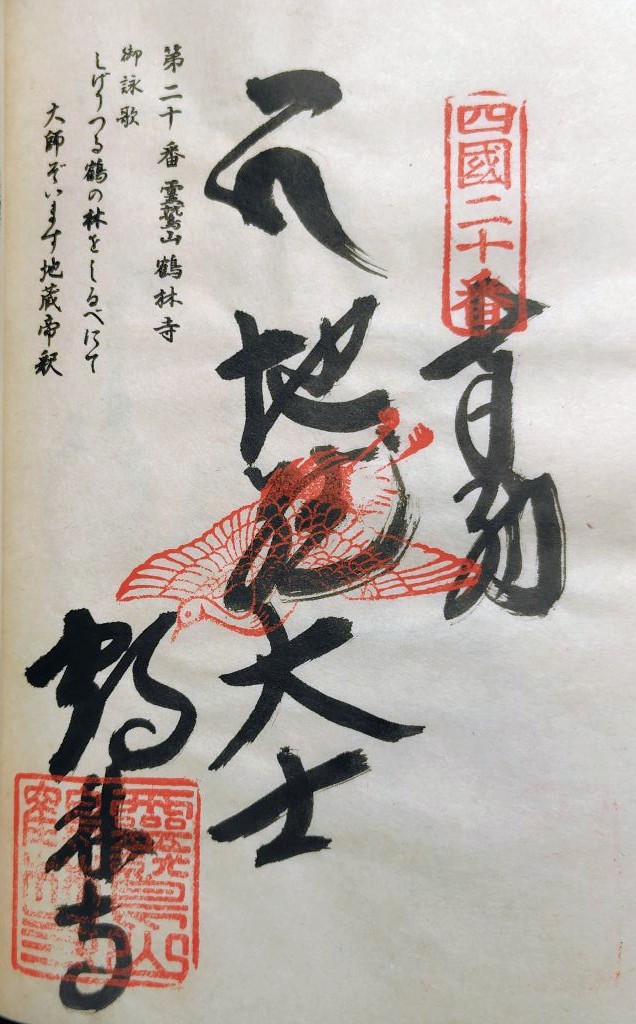 四國二十番
奉拝
地蔵大士
鶴林寺
第二十番 霊鷲山 鶴林寺
御詠歌
しげりつる鶴の林をしるべにて
大師ぞいます地蔵帝釈